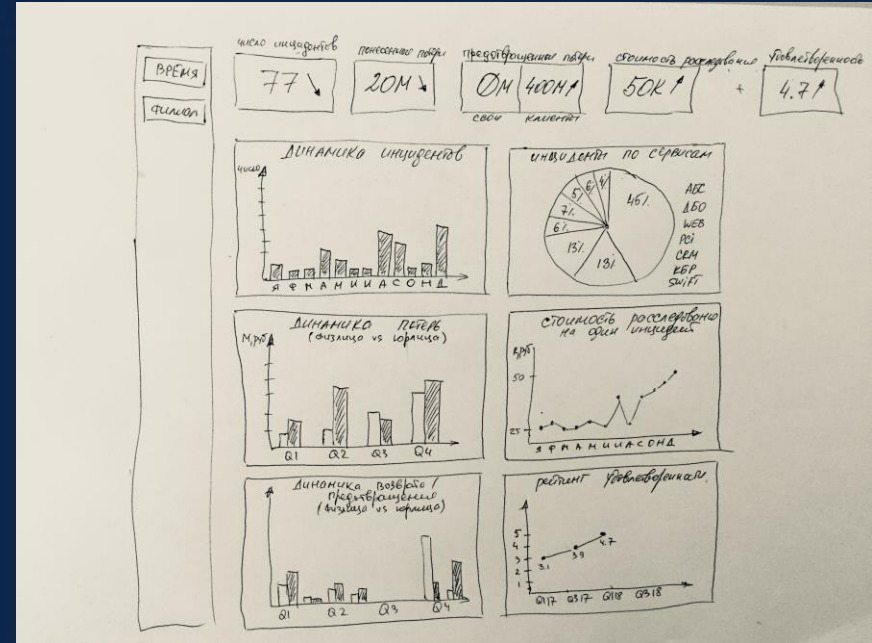 ВРЕМЯ
ФИЛИАЛ
число инцидентов
77
понесенные потери
20М
предотвращенные потери
0М 400М
свои клиенты
стоимость расследования
50К
+
удовлетворенность
4.7
ДИНАМИКА ИНЦИДЕНТОВ
число
Я Ф М А М И И А С О Н Д
ИНЦИДЕНТЫ ПО СЕРВИСАМ
45%
13%
13%
6%
7%
5%
6%
4%
АБС
ДБО
WEB
PCi
CRM
КБР
SWIFT
ДИНАМИКА ПОТЕРЬ
(физлица vs юрлица)
М,руб
Q1 Q2 Q3 Q4
СТОИМОСТЬ расследования
на один инцидент
50
25
Я Ф М А М И И А С О Н Д
ДИНАМИКА ВОЗВРАТА/
ПРЕДОТВРАЩЕНИЯ
(физлица vs юрлица)
Q1 Q2 Q3 Q4
рейтинг удовлетворенности
5
4
3
2
1
3.1
3.9
4.7
Q1 17 Q3 17 Q1 18 Q3 18